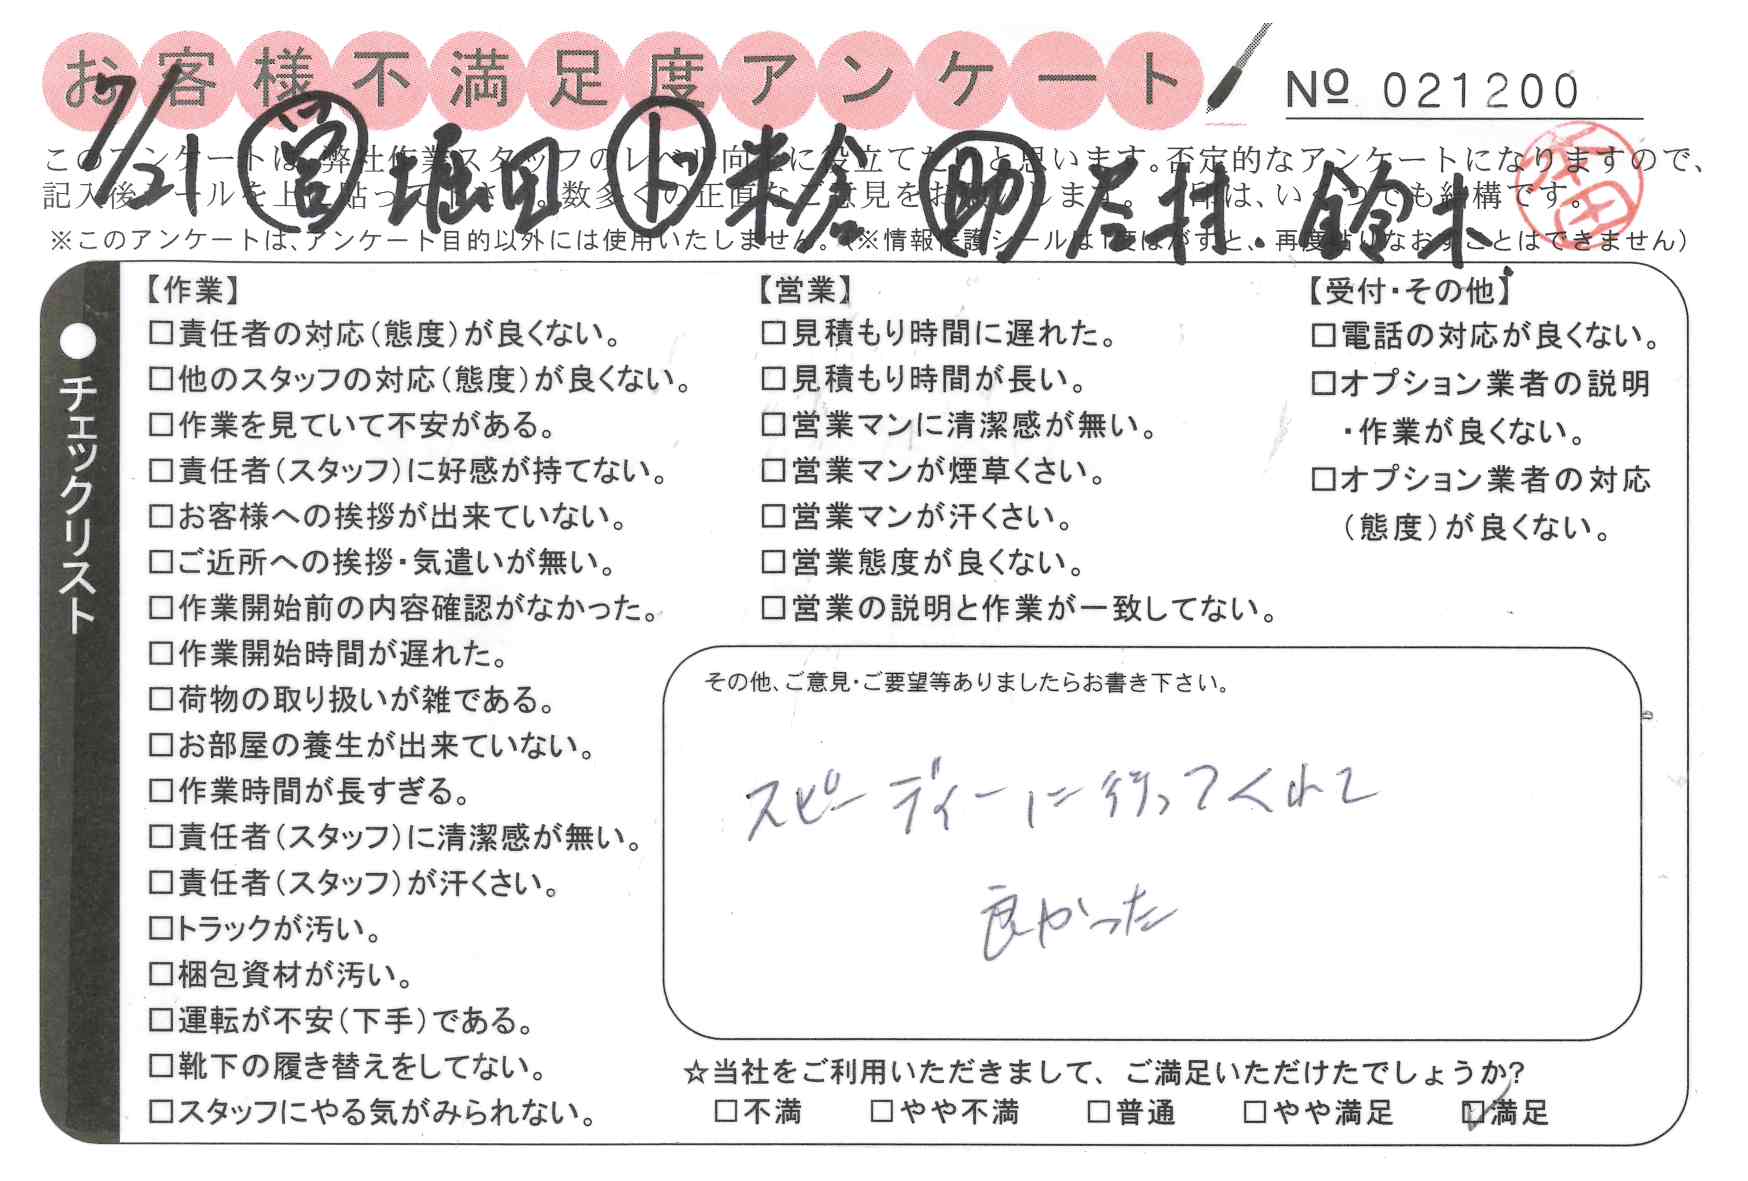 お客様不満足度アンケート
№ 021200
7/21 営 堀田 ド 米倉 助 谷村・鈴木
このアンケートは、弊社作業スタッフのレベル向上に役立てたいと思います。否定的なアンケートになりますので、
記入後シールを上に貼って下さい。数多くの正直なご意見をお願いします。 印は、いくつでも結構です。
※このアンケートは、アンケート目的以外には使用いたしません。(※情報保護シールは1度はがすと、再度貼りなおすことはできません)
●チェックリスト
【作業】
□責任者の対応(態度)が良くない。
□他のスタッフの対応(態度)が良くない。
□作業を見ていて不安がある。
□責任者(スタッフ)に好感が持てない。
□お客様への挨拶が出来ていない。
□ご近所への挨拶・気遣いが無い。
□作業開始前の内容確認がなかった。
□作業開始時間が遅れた。
□荷物の取り扱いが雑である。
□お部屋の養生が出来ていない。
□作業時間が長すぎる。
□責任者(スタッフ)に清潔感が無い。
□責任者(スタッフ)が汗くさい。
□トラックが汚い。
□梱包資材が汚い。
□運転が不安(下手)である。
□靴下の履き替えをしてない。
□スタッフにやる気がみられない。
【営業】
□見積もり時間に遅れた。
□見積もり時間が長い。
□営業マンに清潔感が無い。
□営業マンが煙草くさい。
□営業マンが汗くさい。
□営業態度が良くない。
□営業の説明と作業が一致してない。
【受付・その他】
□電話の対応が良くない。
□オプション業者の説明
・作業が良くない。
□オプション業者の対応
(態度)が良くない。
その他、ご意見・ご要望等ありましたらお書き下さい。
スピーディーに行ってくれて
良かった
☆当社をご利用いただきまして、ご満足いただけたでしょうか?
□不満 □やや不満 □普通 □やや満足 ☑満足